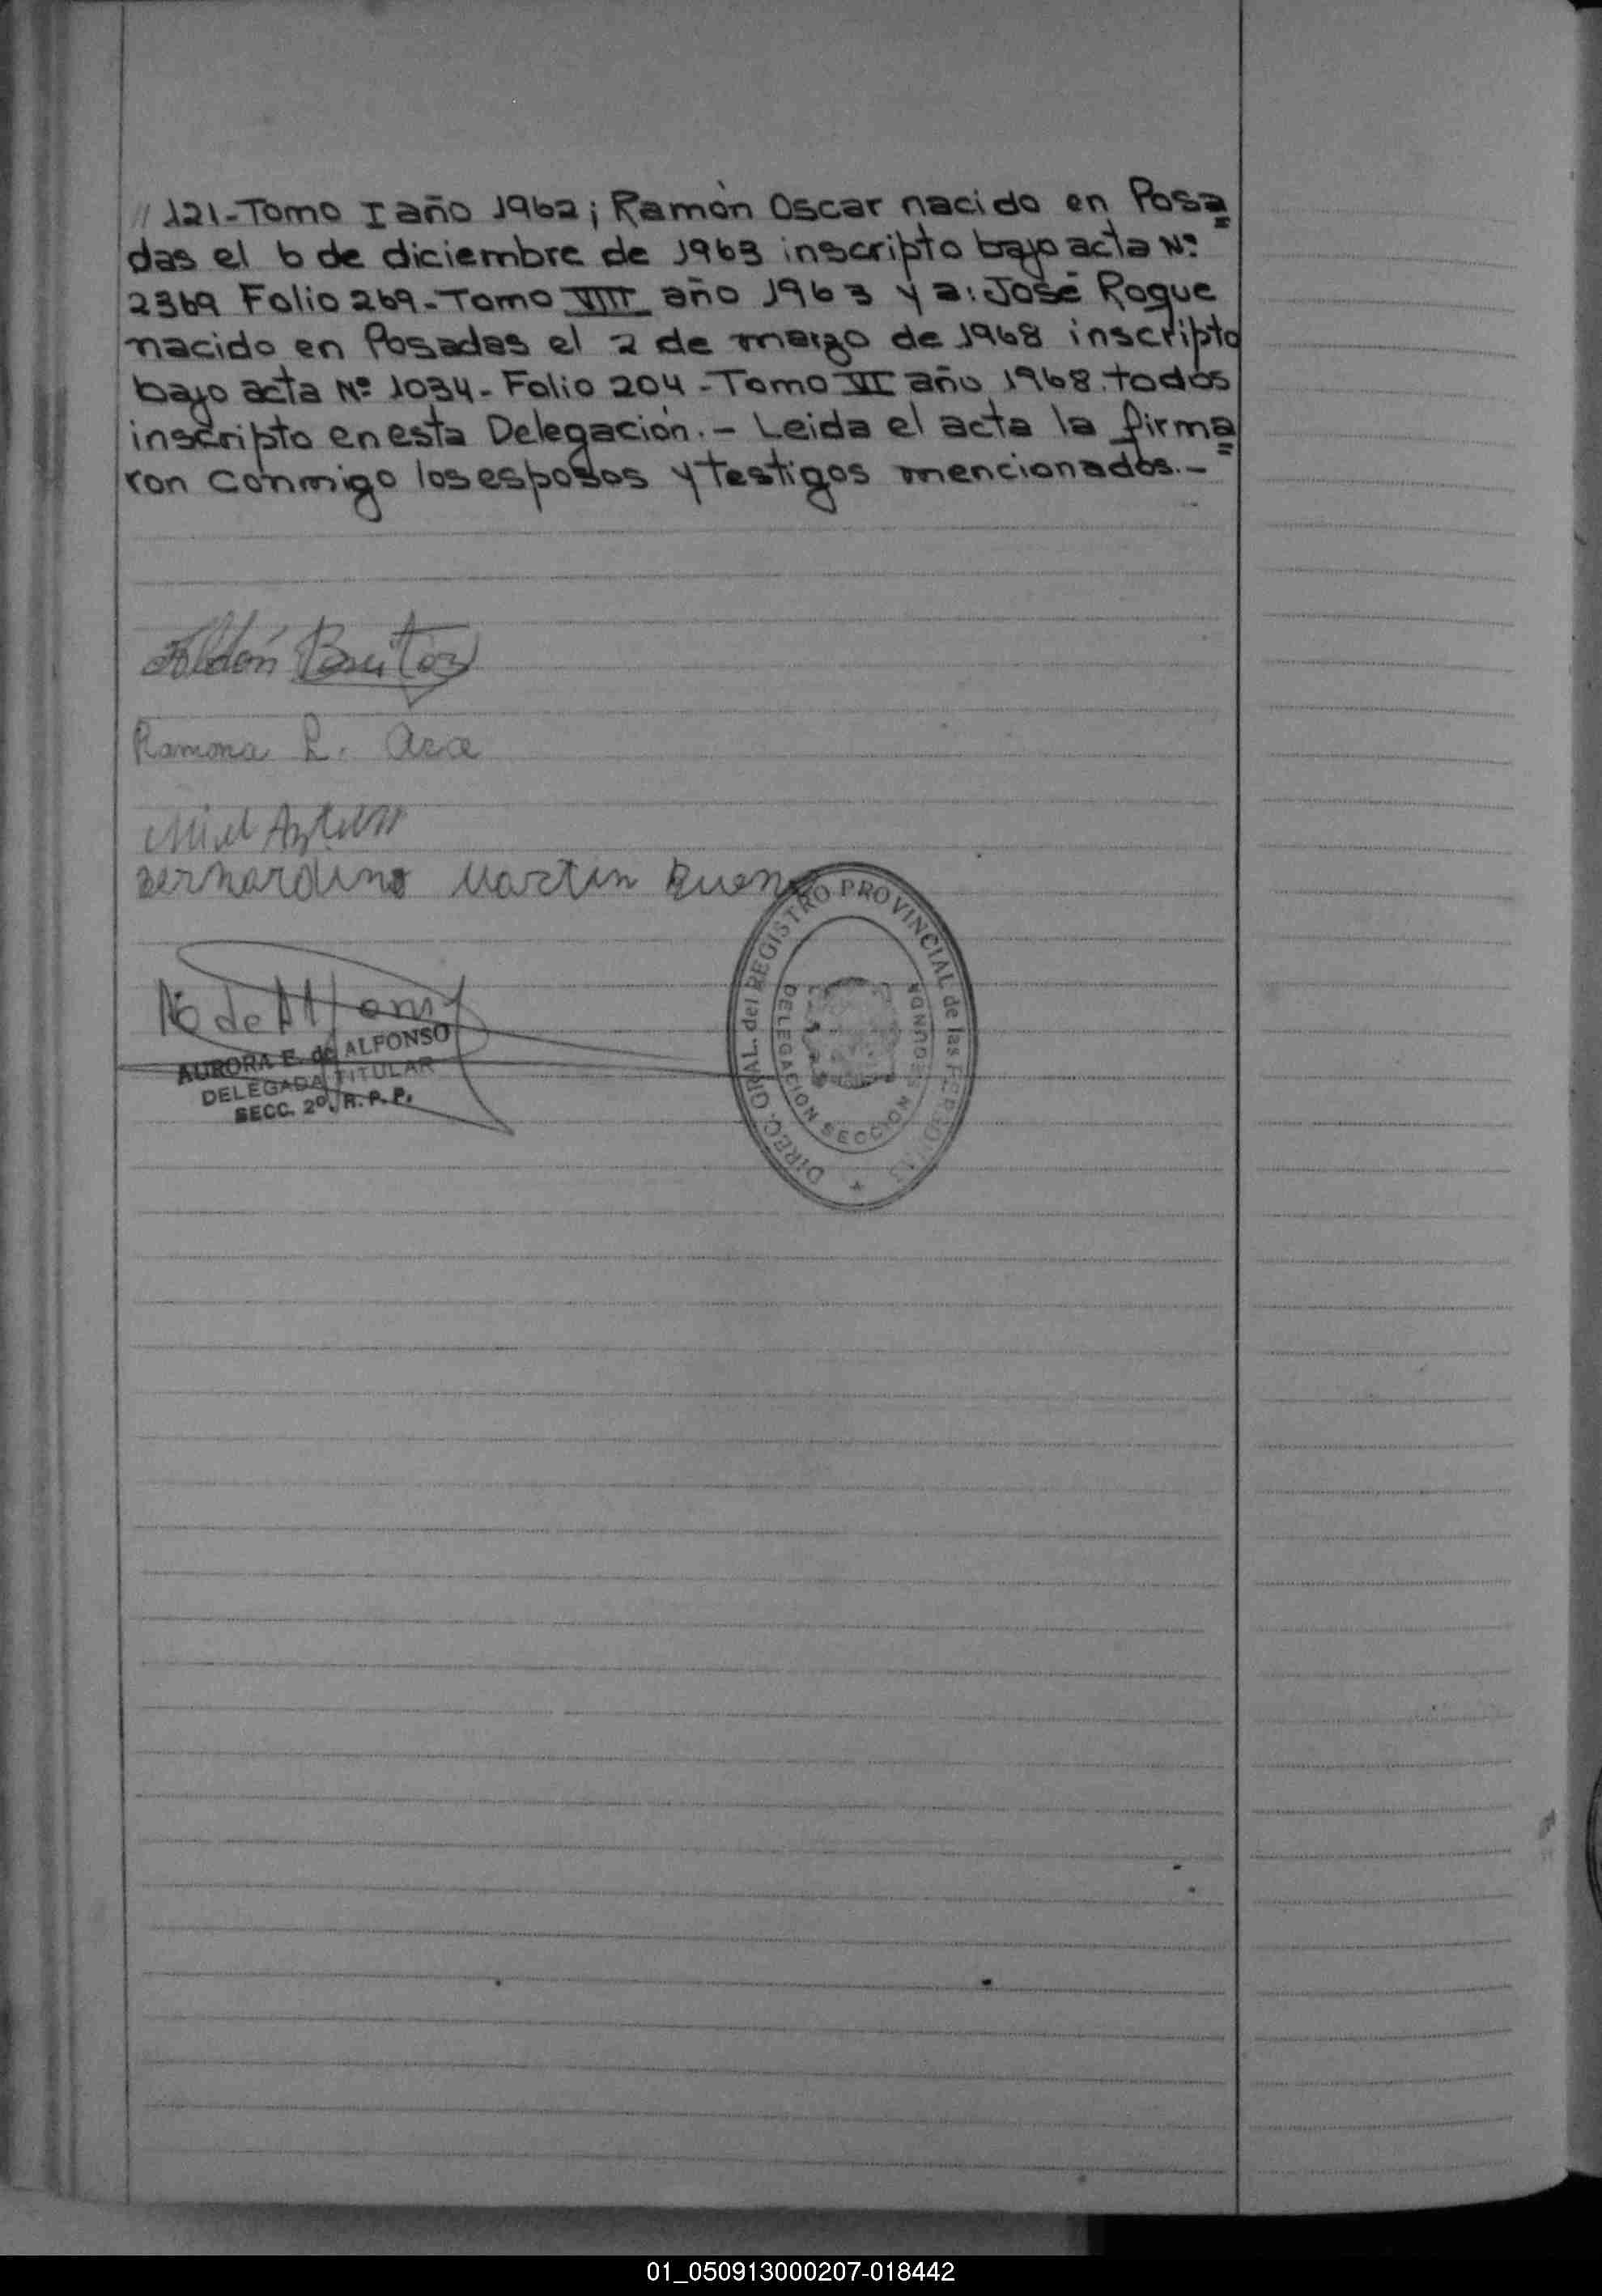 // 121-Tomo I año 1962; Ramón Oscar nacido en Posa=
das el 6 de diciembre de 1963 inscripto bajo acta Nº
2369 Folio 269-Tomo VIII año 1963 y a: José Roque
nacido en Posadas el 2 de marzo de 1968 inscripto
bajo acta Nº 1034-Folio 204-Tomo VI año 1968. todos
inscripto en esta Delegación.- Leida el acta la firma=
ron conmigo los esposos y testigos mencionados.-
Ramona R.
Bernardino Martin Bueno
de Alfonso
AURORA E. de ALFONSO
DELEGADA TITULAR
SECC. 2º. R. P. P.
DIREC. GRAL. del REGISTRO PROVINCIAL de las PERSONAS
DELEGACION SECCION SEGUNDA
01_050913000207-018442